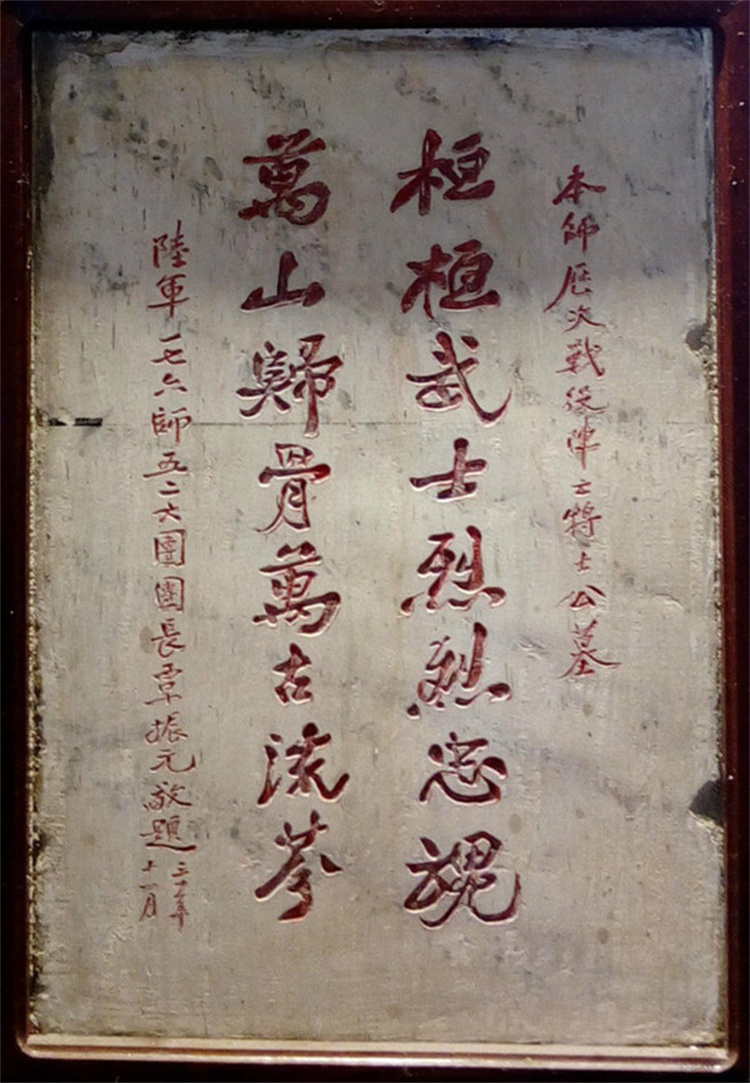 本師歷次戰役陣亡將士公墓
桓桓武士烈烈忠魂
萬山歸骨萬古流芬
陸軍一七六師五二六團團長覃振元敬題
三十年
十一月